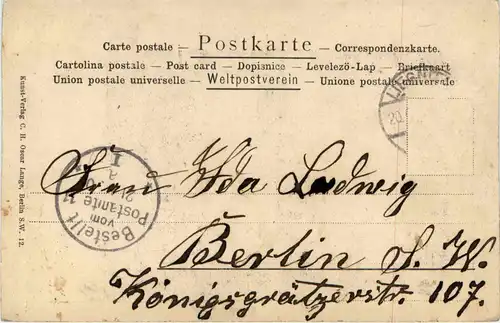 Carte postale :— Postkarte —: Correspondenzkarte.
Cartolina postale — Post card — Dopisnice — Levelező-Lap — Briefkaart
Union postale universelle — Weltpostverein — Unione postale universale
Kunst-Verlag C. H. Oscar Lange, Berlin S.W. 12.
LIEGNI
20
Bestellt
vom
Postamte 11
Frau Ida Ludwig
Berlin S. W.
Königsgrätzerstr. 107.